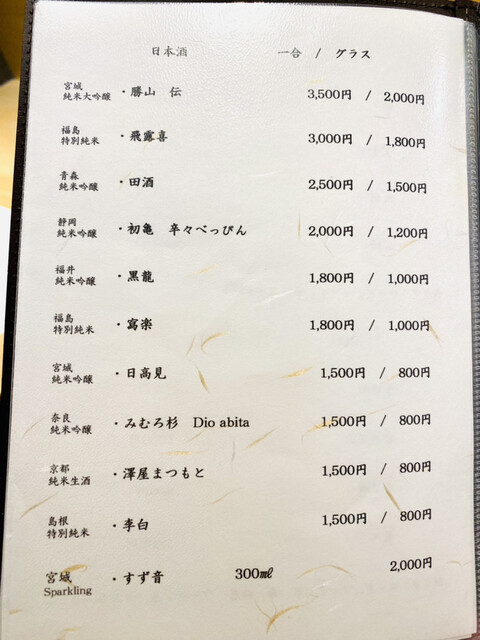 日本酒 一合 / グラス
宮城
純米大吟醸 ・勝山 伝 3,500円 / 2,000円
福島
特別純米 ・飛露喜 3,000円 / 1,800円
青森
純米吟醸 ・田酒 2,500円 / 1,500円
静岡
純米吟醸 ・初亀 辛々べっぴん 2,000円 / 1,200円
福井
純米吟醸 ・黒龍 1,800円 / 1,000円
福島
特別純米 ・寫楽 1,800円 / 1,000円
宮城
純米吟醸 ・日高見 1,500円 / 800円
奈良
純米吟醸 ・みむろ杉 Dio abita 1,500円 / 800円
京都
純米生酒 ・澤屋まつもと 1,500円 / 800円
島根
特別純米 ・李白 1,500円 / 800円
宮城
Sparkling ・すず音 300㎖ 2,000円